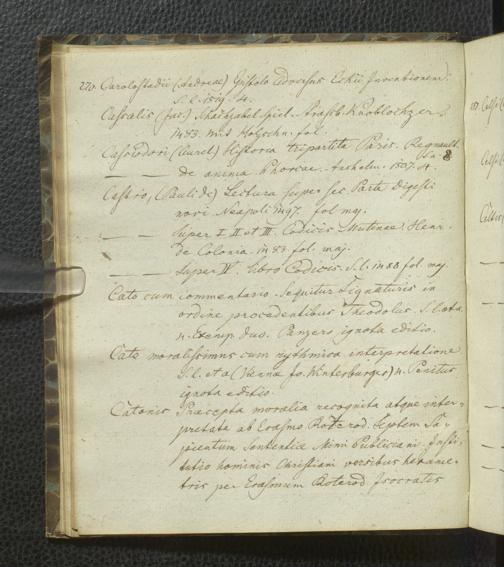 270. Carolostadii (Andreae) Epistola adversus Eckii Inventionem.
S. l. 1519. 4.
Cassalis (Jac.) Schachzabel Spiel. Strasb. Knoblochzer.
1483. mit Holzschn. fol.
Cassiodori (Aurel) Historia tripartita Paris. Regnault. s. a. 8
— — de anima Phorcae. Aschelm. 1507. 4.
Castro, (Pauli de) Lectura super sec Parte Digesti
novi Neapoli 1497. fol maj.
— — super I. II et III. Codicis Mutinae. Henr.
de Colonia. 1483. fol. maj.
— — super IV. libro Codicis. S. l. 1488 fol maj.
Cato cum commentario. Sequitur Signaturis in
ordine procedentibus Theodolus. S. l. et a
4. Exemp. duo. Panzero ignota editio.
Cato moralissimus cum rythmica interpretatione
S. l. et a (Viennae Jo. Winterburger) 4. Penitus
ignota editio.
Catonis Praecepta moralia recognita atque inter-
pretata ab Erasmo Roterod. Septem Sa-
pientum Sententiae Mimi Publiciani. Insti-
tutio hominis Christiani versibus hexame-
tris per Erasmum Roterod Isocratis